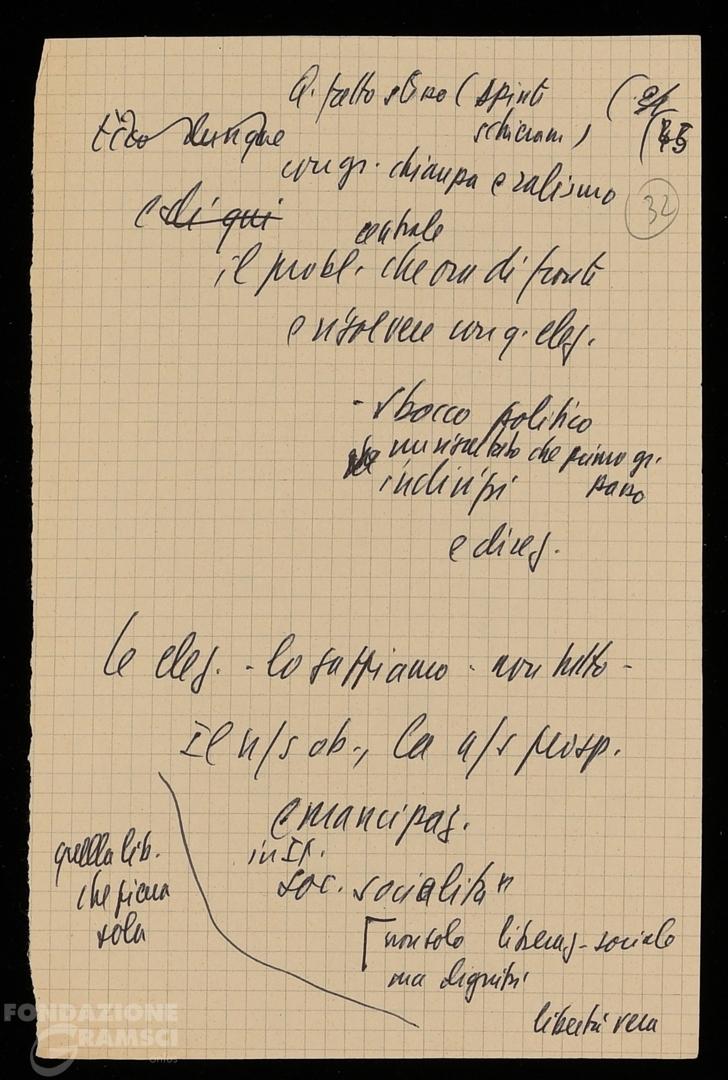 Q. fatto stesso (spinte
schieram)
dunque
con gr. chiarezza e realismo
e di qui
32
centrale
il probl. che ora di fronte
e risolvere con q. elez.
- sbocco politico
un risultato che primo gr.
passo
e direz.
Le elez. - lo sappiamo - non tutto -
Il n/s ob., la n/s prosp.
emancipaz.
in It.
soc. socialista
quella lib.
che piena
sola
non solo liberaz. sociale
ma dignità
libertà vera
FONDAZIONE
GRAMSCI
onlus